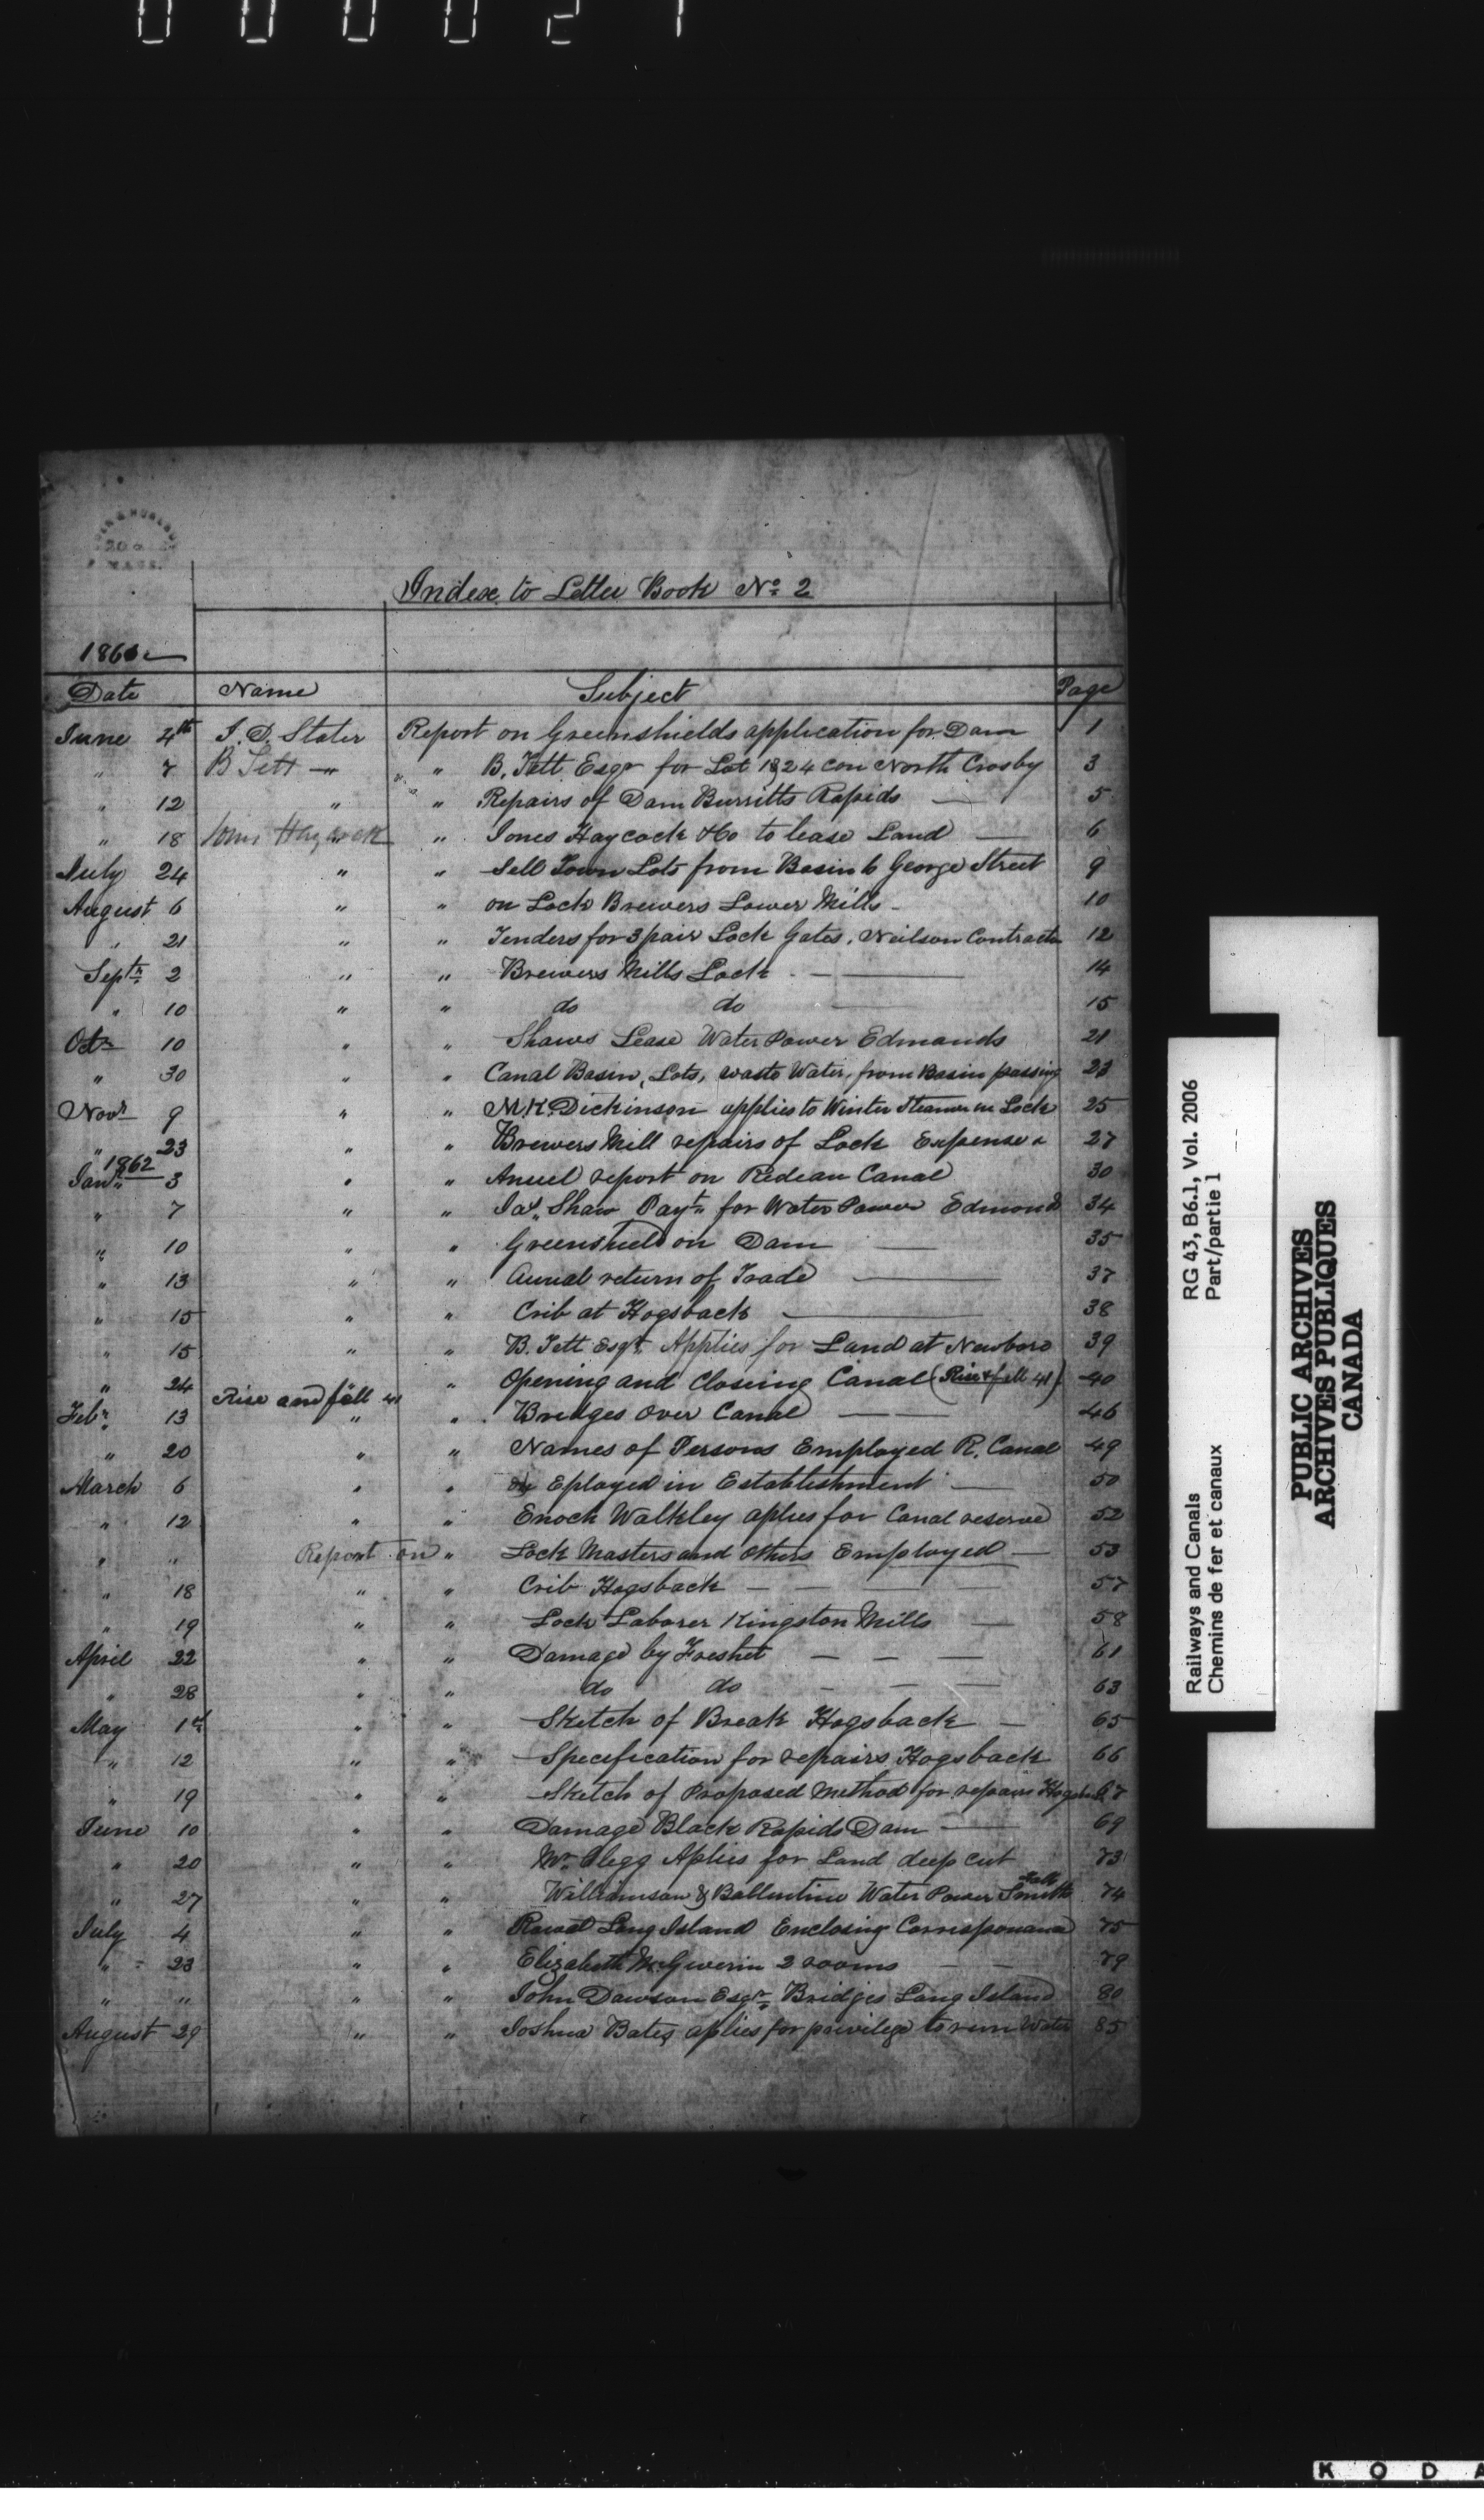 Index to Letter Book No. 2
1861
Date Name Subject Page
June 4th J. D. Slater Report on Greenshields application for Dam 1
" 7 B Tett — " " " B. Tett Esqr for Lot 18, 24 con North Crosby 3
" 12 " " Repairs of Dam Burritts Rapids — 5
" 18 Jones Haycock " Jones Haycock & Co to lease Land — 6
July 24 " " Sell Town Lots from Basin to George Street 9
August 6 " " on Lock Brewers Lower Mills - 10
" 21 " " Tenders for 3 pair Lock Gates, Neilson Contractor 12
Septr 2 " " Brewers Mills Lock — 14
" 10 " " do do — 15
Octr 10 " " Shaws Lease Water Power Edmonds 21
" 30 " " Canal Basin, Lots, waste Water, from Basin passing 23
Novr 9 " " M.K. Dickinson applies to Winter Steamer in Lock 25
" 23 " " Brewers Mill repairs of Lock Expense 27
1862
Jany 3 " " Anuel report on Rideau Canal 30
" 7 " " Jas. Shaw Payt for Water Power Edmonds 34
" 10 " " Greenshield on Dam — 35
" 13 " " Anual return of Trade — 37
" 15 " " Crib at Hogsback — 38
" 15 " " B. Tett Esqr Applies for Land at Newboro 39
" 24 " Opening and Closing Canal (Rise & fall 41) 40
Rise and fall 41
Febr 13 " " Bridges over Canal — — 46
" 20 " " Names of Persons Employed R. Canal 49
March 6 " " Eployed in Establishment — 50
" 12 " " Enoch Walkley aplies for Canal reserve 52
" " Report on " Lock Masters and others Employed — 53
" 18 " " Crib Hogsback — — — 57
" 19 " " Lock Laborer Kingston Mills — 58
April 22 " " Damage by Freshet — — — 61
" 28 " " do do — — — 63
May 1st " " Sketch of Break Hogsback — 65
" 12 " " Specification for repairs Hogsback 66
" 19 " " Sketch of Proposed Method for repairs Hogsback 67
June 10 " " Damage Black Rapids Dam — 69
" 20 " " Mr. Clegg Aplies for Land deep cut 73
" 27 " " Williamson & Ballentine Water Power Smiths Falls 74
July 4 " " Road Long Island Enclosing Correspondance 75
" 23 " " Elizabeth McGiverin 2 rooms — — 79
" " " " John Dawson Esqr. Bridges Long Island 80
August 29 " " Joshua Bates aplies for privilege to run Water 85
RG 43, B6.1, Vol. 2006
Part/partie 1
Railways and Canals
Chemins de fer et canaux
PUBLIC ARCHIVES
ARCHIVES PUBLIQUES
CANADA
KODA